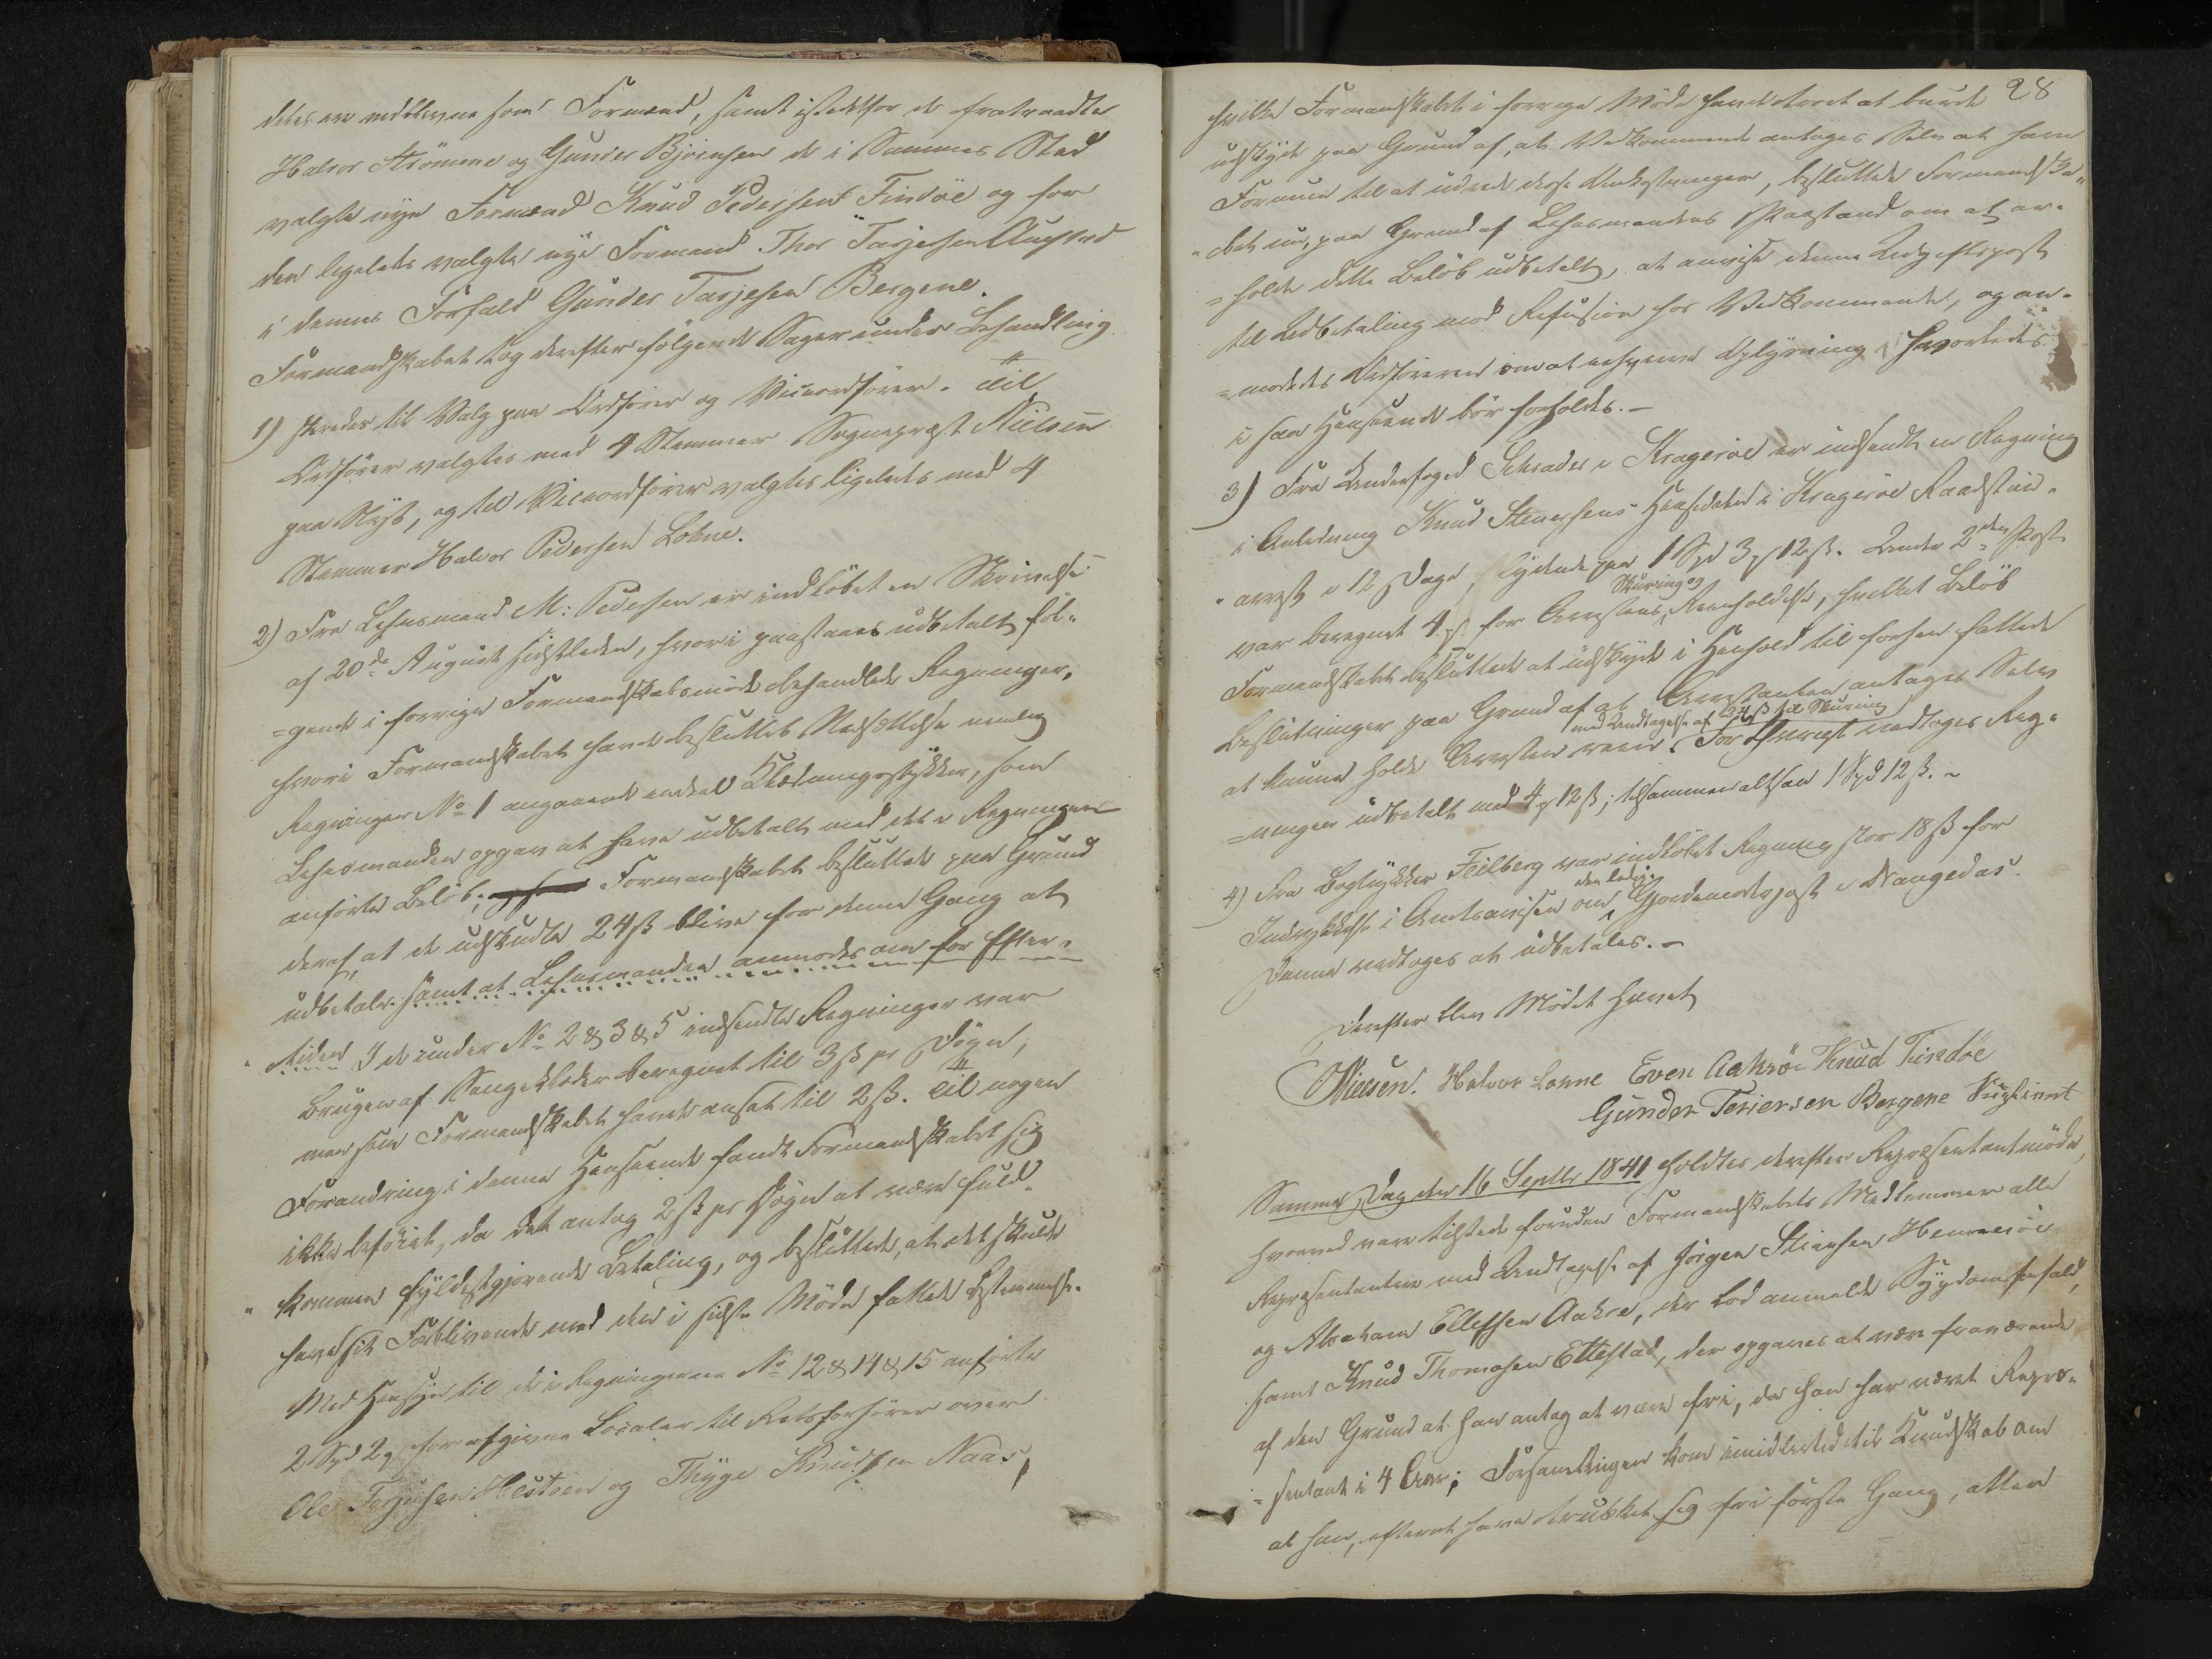 deles ere vedblevne som Formænd, samt istedetfor de fratraadte
Halvor Strömme og Gunder Björnsen de i Sammes Sted
valgte nye Formænd Knud Pedersen Tindöe og for
den ligeledes valgte nye Formand Thor Tarjesen Augstad
i dennes Forfald Gunder Tarjesen Bergene.
Formandskabet tog derefter fölgende Sager under Behandling
1) skredes til Valg paa Ordförer og Viceordförer. Til
Ordförer valgtes med 4 Stemmer Sognepræst Nielsen
paa Næs, og til Viceordförer valgtes ligeledes med 4
Stemmer Halvor Pedersen Lohne.
2) Fra Lehnsmand M: Pedersen er indlöbet en Skrivelse
af 20de August sidstleden, hvori paastaaes udbetalt föl-
=gende i forrige Formandskabsmöde behandlede Regninger,
hvori Formandskabet havde besluttet Nedsættelse nemlig
Regningen No 1 angaaende endeel Klædningsstykker, som
Lehnsmanden opgav at have udbetalt med det i Regningen
anförte Belöb; Formandskabet besluttede paa Grund
deraf, at de udskudte 24 ß blive for denne Gang at
udbetale samt at Lehnsmanden anmodes om for Efter-
"tiden I de under No 2 & 3 & 5 indsendte Regninger var
Brugen af Sengeklæder beregnet til 3 ß pr Dögn,
men som Formandskabet havde ansat til 2 ß. Til nogen
Forandring i denne Henseende fandt Formandskabet sig
ikke beföiet, da det antog 2 ß pr Dögn at være fuld-
"kommen fyldestgjörende Betaling, og besluttede, at det skulde
have sit Forblivende med den i sidste Möde fattede Bestemmelse.
Med Hensyn til de i Regningerne No 12 & 14 & 15 anförte
2 Spd 2 for afgivne Localer til Retsforhörer over
Ole Terjesen Hestöen og Thyge Knudsen Naas,
28
hvilke Formandskabet i forrige Möde havde troet at burde
udskyde paa Grund af, at Vedkommende antages Selv at have
Formue til at udrede disse Omkostninger, besluttede Formandska-
"bet nu, paa Grund af Lehnsmandens Paastand om at er-
=holde dette Belöb udbetalt, at anvise denne Udgiftspost
til Udbetaling mod Refusion hos Vedkommende, og an-
=modedes Ordföreren om at erhverve Oplysning, hvorledes
i saa Henseende bör forholdes. –
3) Fra Underfoged Schrader i Kragerøe er indsendt en Regning
i Anledning Knud Stenersens Hensidden i Kragerøe Raadstue-
"arrest i 12 Dage, lydende paa 1 Spd 3 12 ß. Under 2den Post
var beregnet 4 for Arrestens Skuring og Reenholdelse, hvilket Belöb
Formandskabet besluttede at udskyde i Henhold til forhen fattede
Beslutninger paa Grund af at Arrestanten antages Selv
at kunne holde Arresten reen, med Undtagelse af 24 ß til Skuring. For Övrigt vedtoges Reg-
=ningen udbetalt med 4 12 ß; tilsammen altsaa 1 Spd 12 ß. –
4) Fra Bogtrykker Feilberg var indlöbet Regning stor 18 ß for
Indrykkelse i Amtsavisen om den ledige Gjordemoderpost i Drangedal.
Denne vedtoges at udbetales. –
Derefter blev Mödet hævet
Nielsen. Halvor Lonne Even Aakröe Knud Tindöe
Gunder Teriersen Bergene
Samme Dag den 16 Septbr 1841 holdtes derefter Repræsentantmöde,
hvorved vare tilstede foruden Formandskabets Medlemmer alle
Repræsentanter med Undtagelse af Jörgen Stiansen Henseröie
og Abraham Ellefsen Aakre, der lod anmelde Sygdomsforfald,
samt Knud Thomasen Ettestad, der opgaves at være fraværende
af den Grund at han antog at være fri, da han har været Repræ-
=sentant i 4 Aar; Forsamlingen kom imidlertid til Kundskab om
at han, efter at have trukket sig fri förste Gang, atter